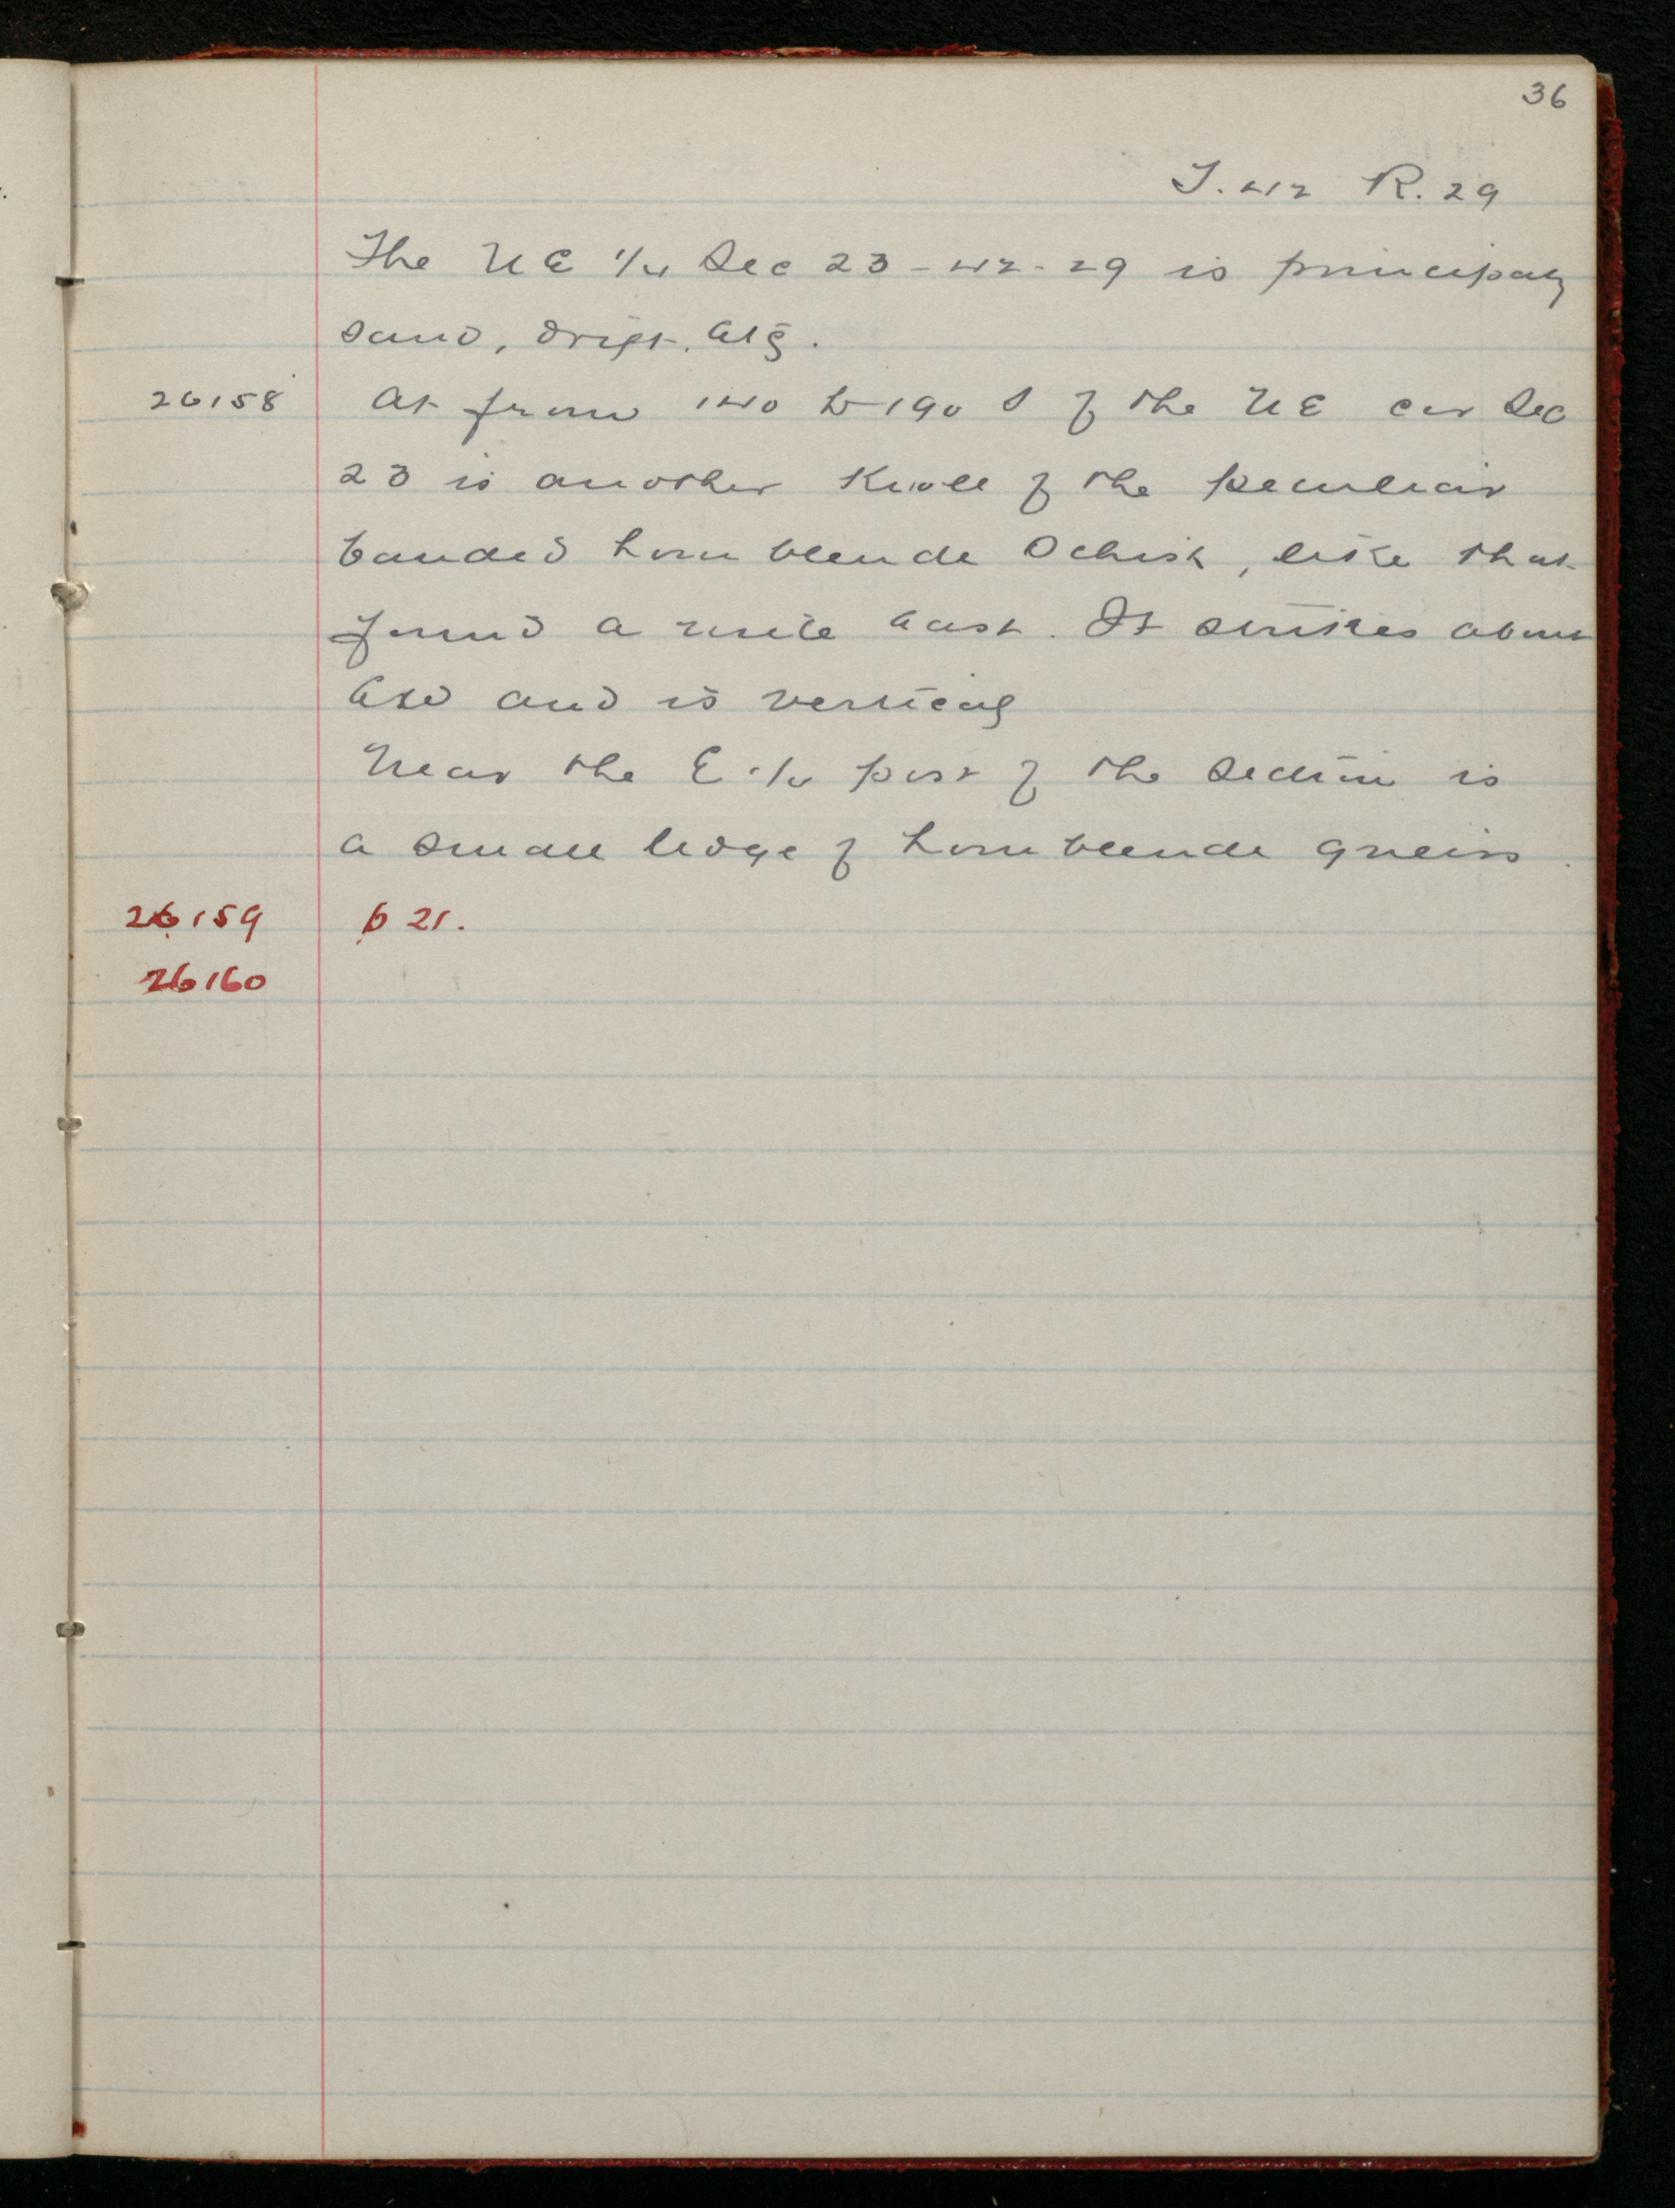 36
T. 42 R. 29
The NE 1/4 Sec 23-42-29 is principally
sand, drift, etc.
26158 At from 140 to 190 S of the NE cor Sec
23 is another Knoll of the peculiar
banded hornblende Schist, like that
found a mile East. It strikes about
E&W and is vertical
Near the E 1/4 post of the section is
a small ledge of hornblende gneiss.
26159 p 21.
26160